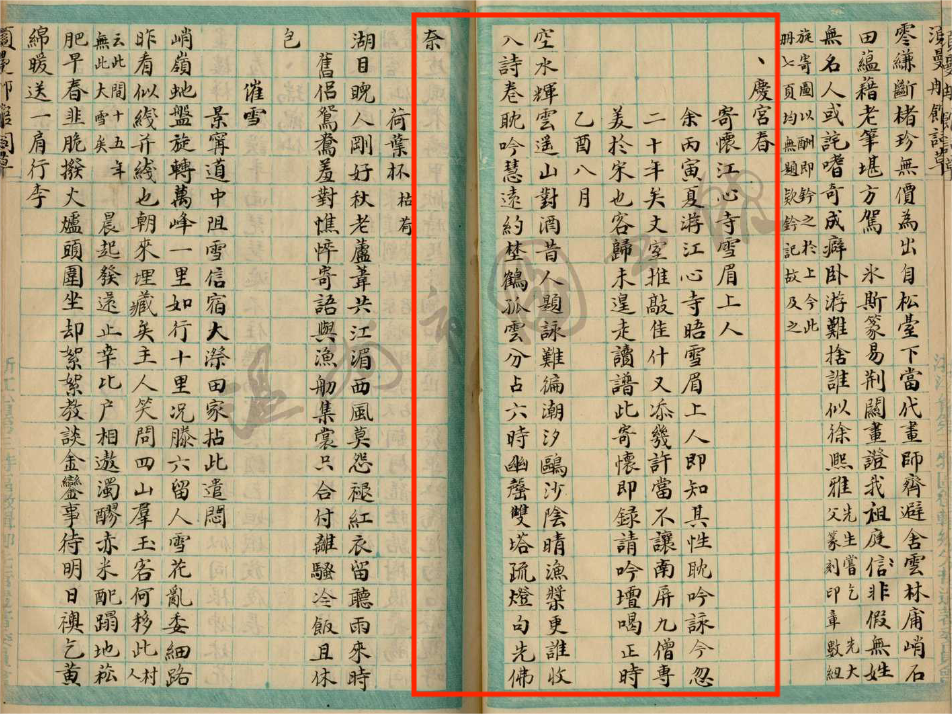 零縑斷楮珍無價為出自松臺下當代畫師齊避舍雲林甫峭石
田蘊藉老筆堪方駕 氷斯篆易荆關畫證我祖庭信非假無姓
無名人或詫嗜奇成癖卧游難捨誰似徐熙雅 先生嘗乞先大父篆刻印章數紐
旋寄圖以酬即鈐之於上今此
冊七頁均無題欵鈐記故及之
、慶宮春
寄懷江心寺雪眉上人
余丙寅夏游江心寺晤雪眉上人即知其性耽吟詠今忽
二十年矣丈室推敲佳什又添幾許當不讓南屏九僧專
美於宋也客歸未遑走讀譜此寄懷即録請吟壇喝正時
乙酉八月
空水輝雲遥山對酒昔人題詠難編潮汐鷗沙陰晴漁槳更誰收
入詩卷耽吟慧遠約埜鶴孤雲分占六時幽罄雙塔疏燈句先佛
柰
荷葉杯 枯荷
湖日晚人剛好秋老蘆葦共江湄西風莫怨褪紅衣留聽雨來時
舊侣鴛鴦羞對憔悴寄語與漁舠集裳只合付離騷冷飯且休
包
催雪
景寧道中阻雪信宿大漈田家拈此遣悶
峭嶺地盤旋轉萬峰一里如行十里况滕六留人雪花亂委細路
昨看似綫并綫也朝來埋藏矣主人笑問四山羣玉客何移此 村人
云此間十五年無此大雪矣 晨起發還止幸比户相遨濁醪赤米配蹋地菘
肥早春韭脆撥火爐頭圍坐却絮絮教談金鑾事待明日襖乞黄
綿暖送一肩行李